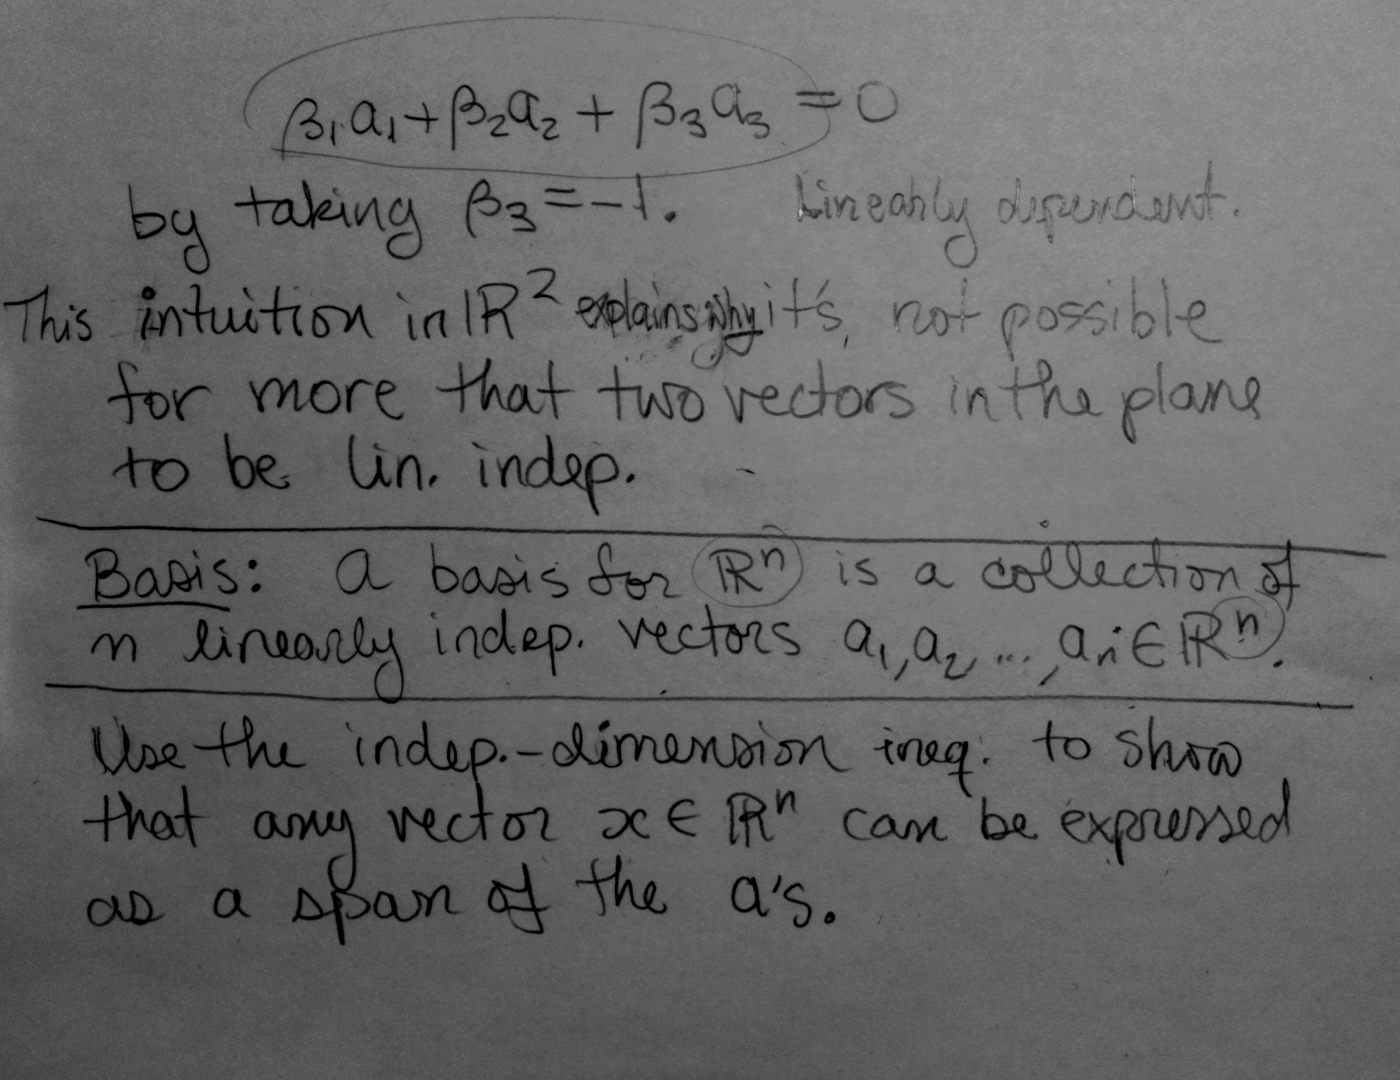 β₁a₁+β₂a₂ + β₃a₃ = 0
by taking β₃=-1. Linearly dependent.
This intuition in ℝ² explains why it's not possible
for more that two vectors in the plane
to be lin. indep.
Basis: A basis for ℝⁿ is a collection of
n linearly indep. vectors a₁, a₂, ..., aₙ ∈ ℝⁿ.
Use the indep.-dimension ineq. to show
that any vector x ∈ ℝⁿ can be expressed
as a span of the a's.